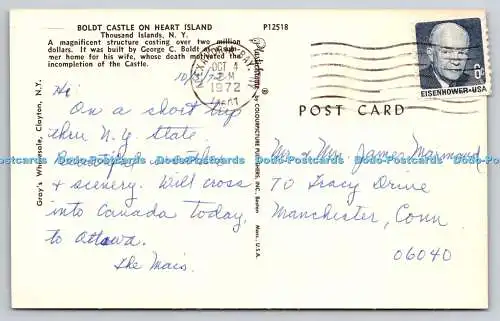 BOLDT CASTLE ON HEART ISLAND
Thousand Islands, N. Y.
A magnificent structure costing over two million
dollars. It was built by George C. Boldt as a summer
home for his wife, whose death motivated the
incompletion of the Castle.
P12518
10/4/72
Hi,
On a short trip
thru N.Y. State.
Beautiful weather
& scenery. Will cross
into Canada today,
to Ottawa.
The Mais.
Gray's Wholesale, Clayton, N.Y.
Plastichrome ® by COLOURPICTURE PUBLISHERS, INC., Boston Mass., U.S.A.
ALEXANDRIA BAY, NY
OCT 4
PM
1972
EISENHOWER·USA
POST CARD
Mr & Mrs James Marmond
70 Tracy Drive
Manchester, Conn
06040
Dodo-Postcards Dodo-Postcards Dodo-Postcards Dodo-Postcards Dodo-Postcards Dodo-Postcards